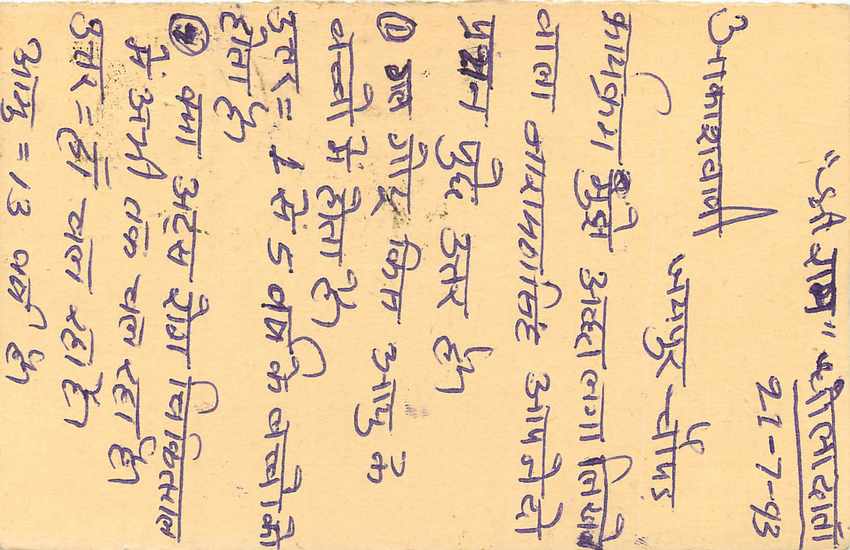 "श्री राम" पीपाड़
21-7-93
आकाशवाणी
जयपुर - चौपड़
कार्यक्रम मुझे अच्छा लगा जिसमे
वाला आपने दो
प्रश्न पुछे उत्तर है।
① गल गोटू किस आयु के
बच्चो मे होता है।
उत्तर = 1 से 5 वर्ष के बच्चो को
होता है।
② क्या अट्स रोग
मे अभी तक चल रहा है।
उत्तर = हाँ चल रहा है।
आयु = 13 वर्ष है।